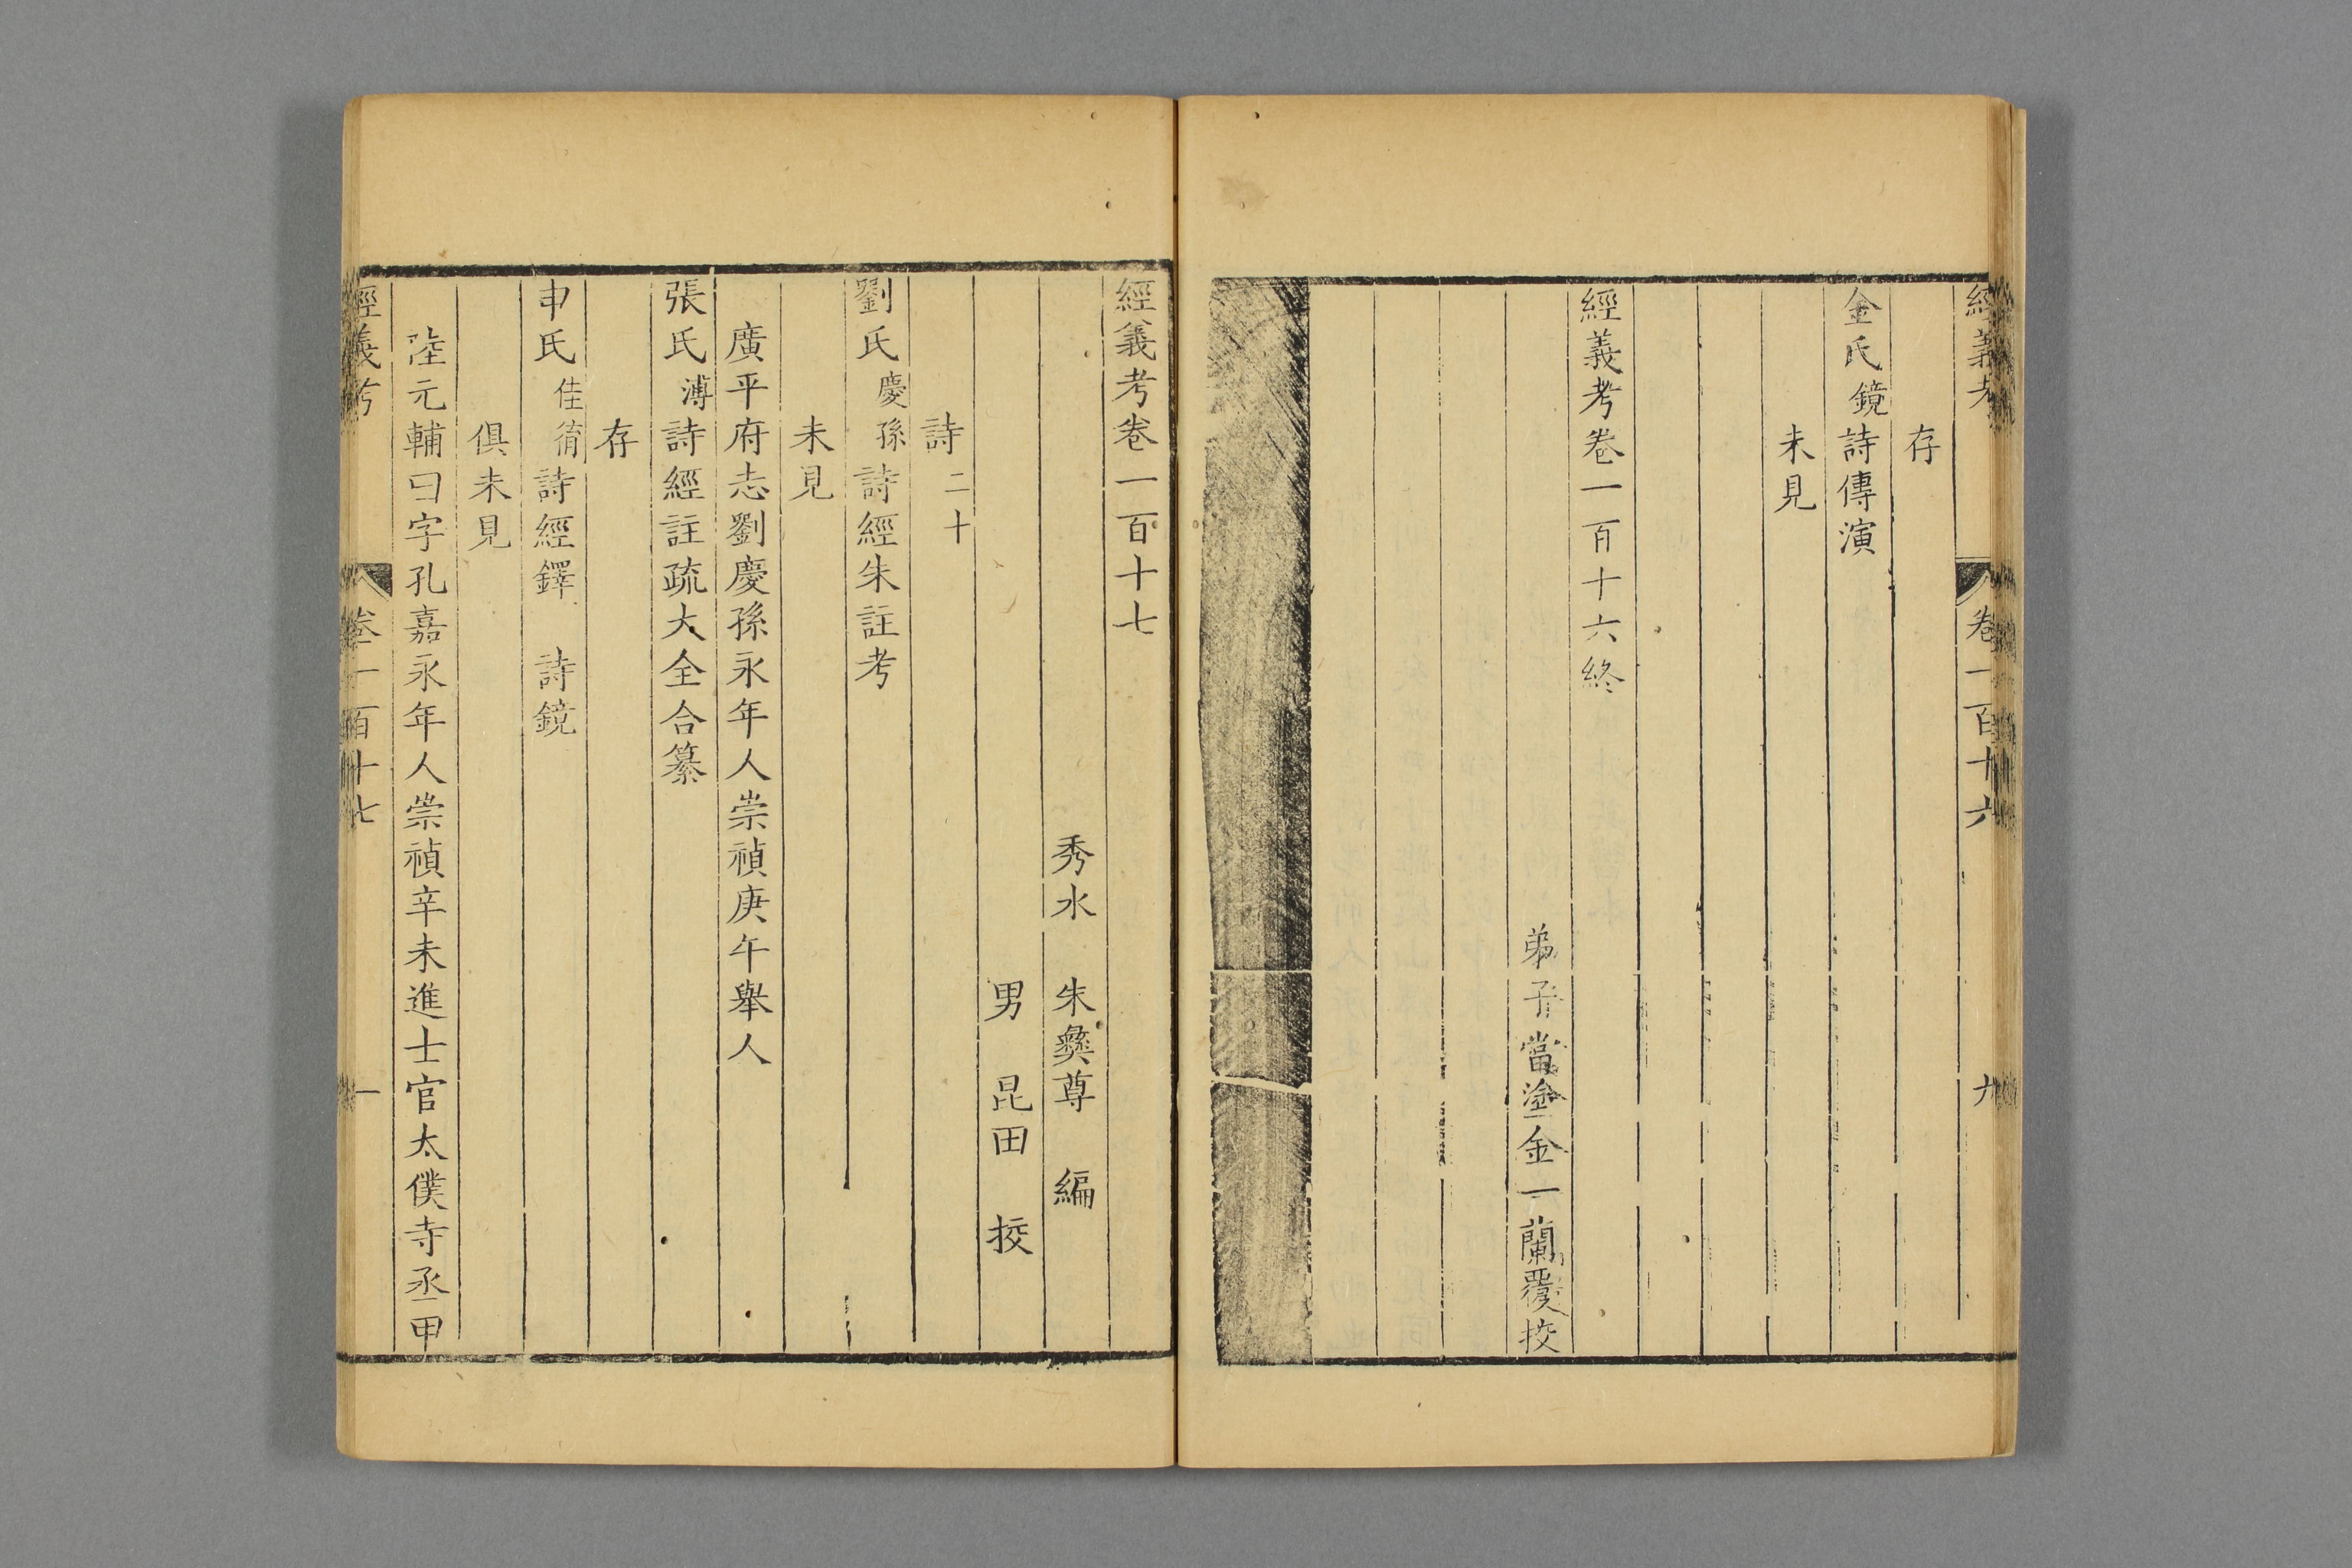 經義考 卷一百十六 九
存
金氏鏡詩傳演
未見
經義考卷一百十六終
弟子當塗金一蘭覆挍
經義考卷一百十七
秀水 朱彝尊 編
男 昆田 挍
詩二十
劉氏慶孫詩經朱註考
未見
廣平府志劉慶孫永年人崇禎庚午舉人
張氏溥詩經註疏大全合纂
存
申氏佳胤詩經鐸 詩鏡
俱未見
陸元輔曰字孔嘉永年人崇禎辛未進士官太僕寺丞甲
經義考 卷一百十七 一